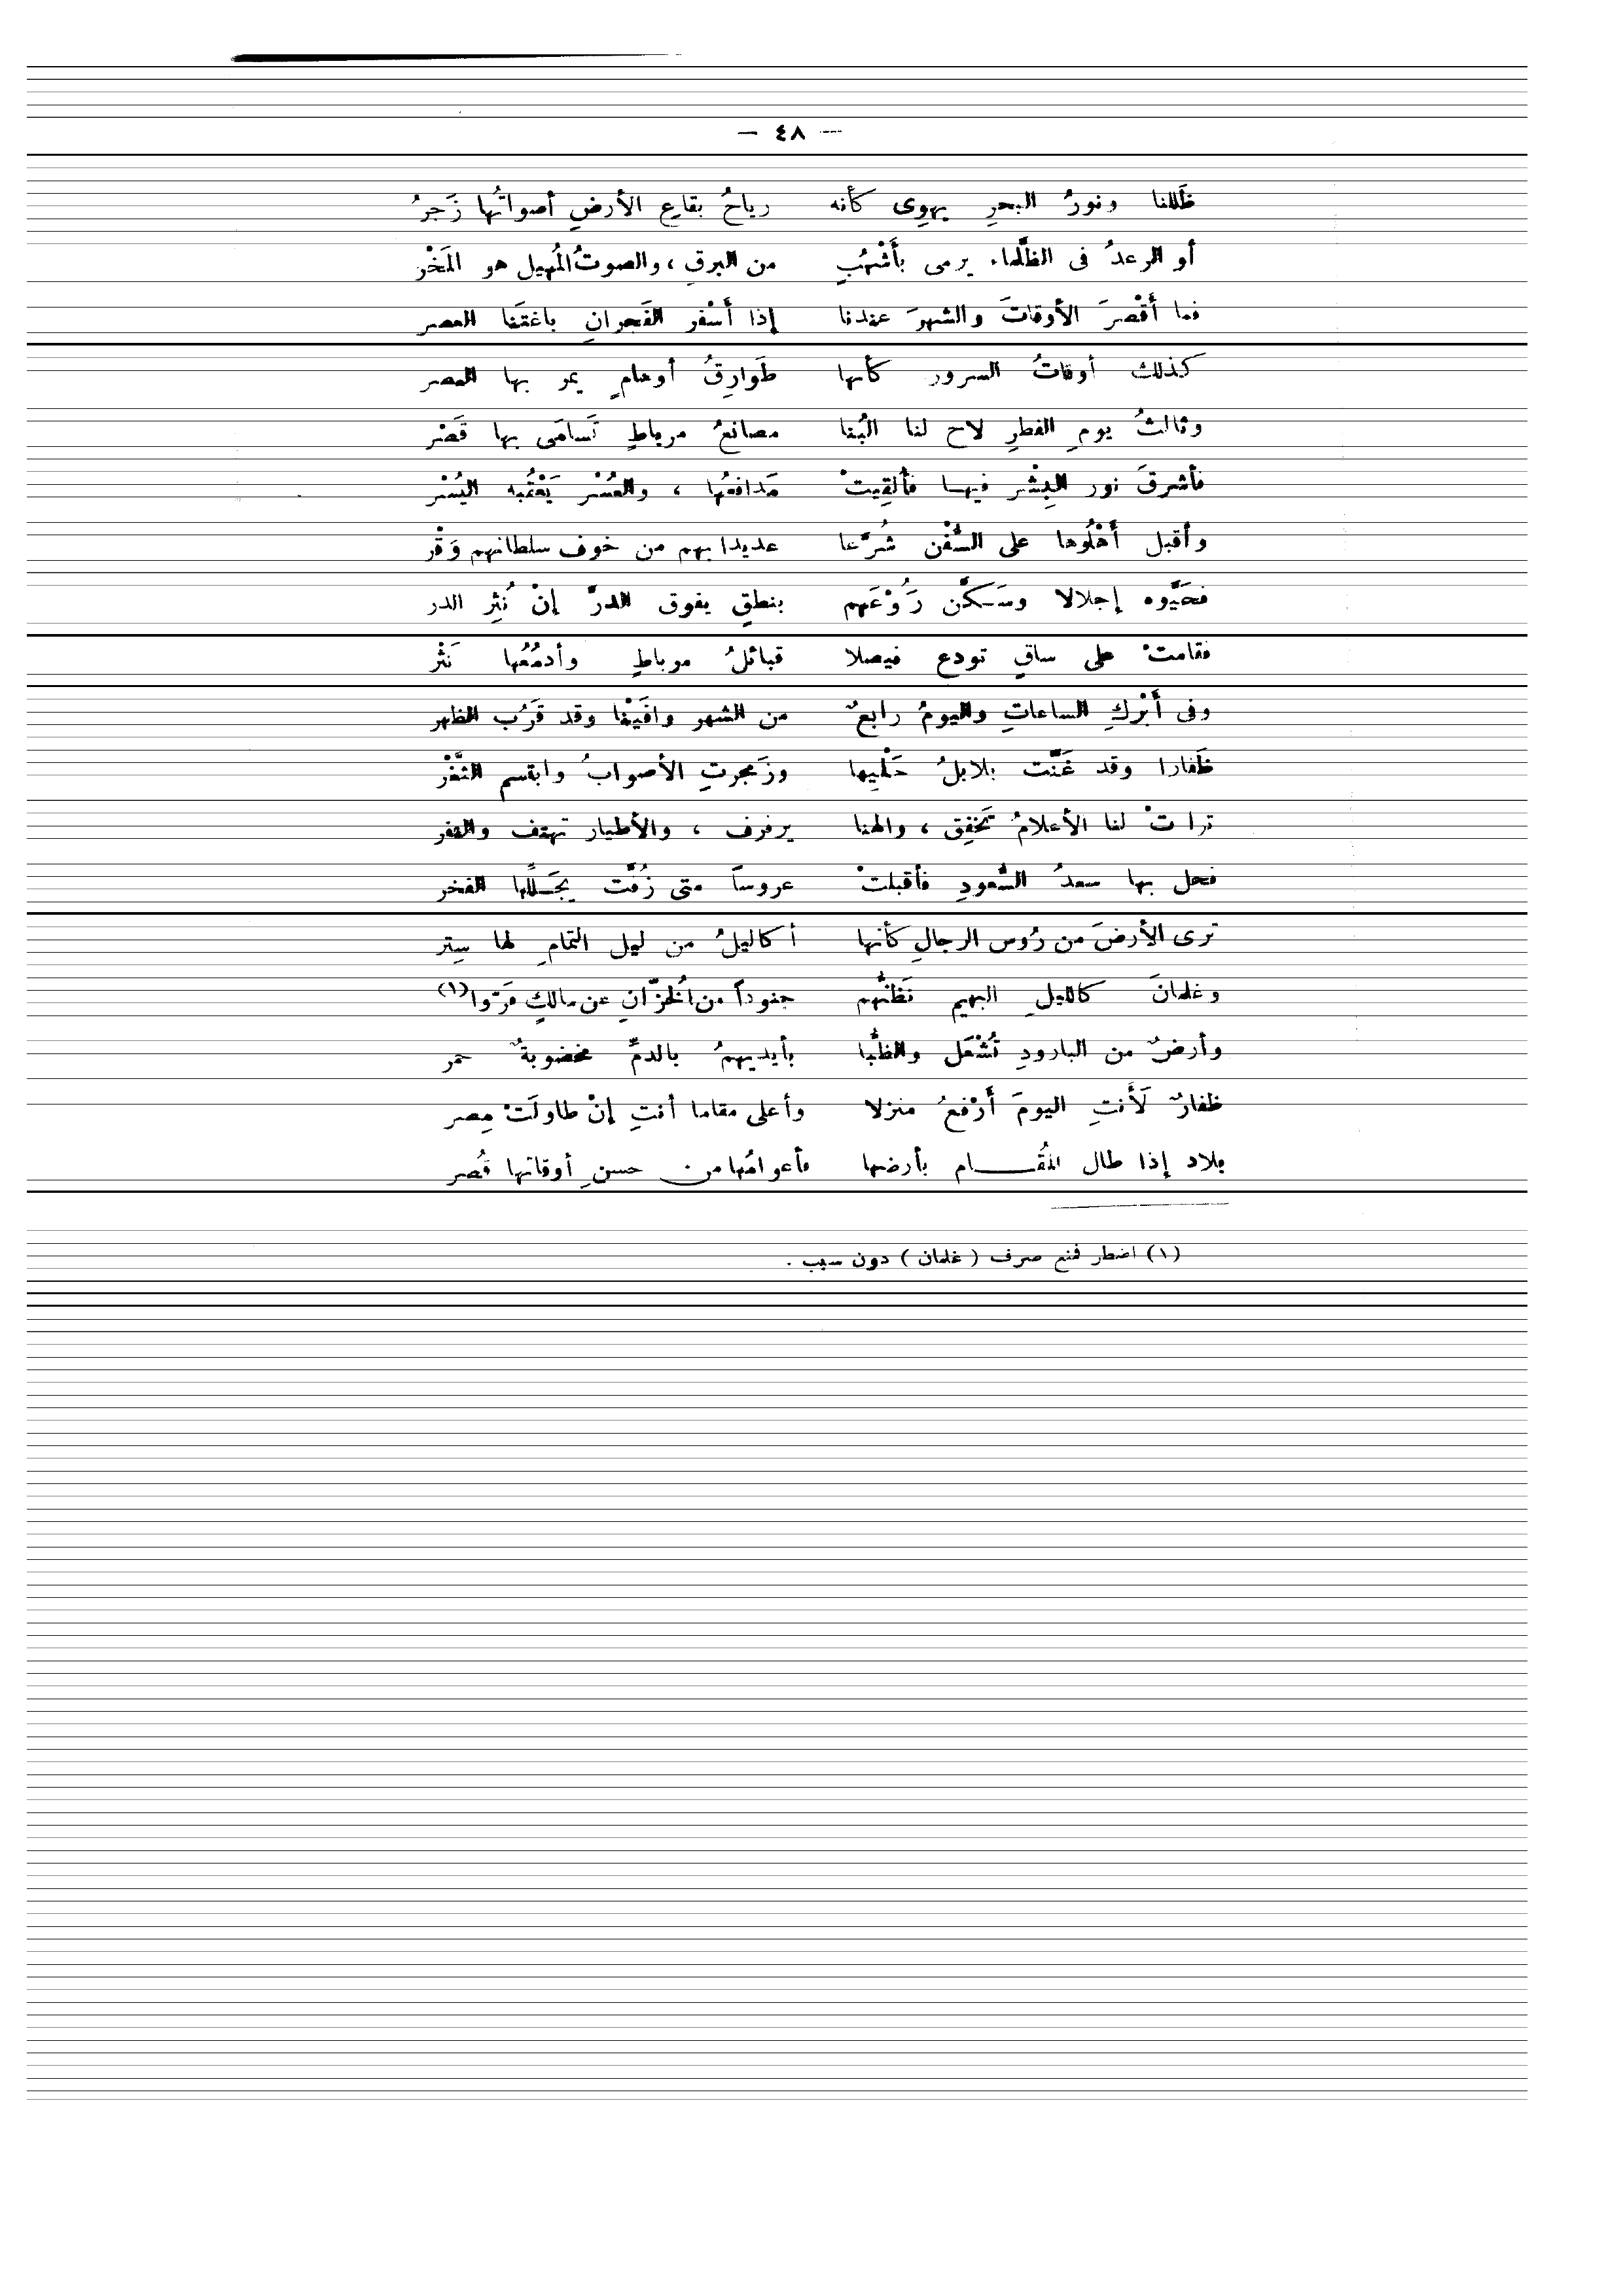 — ٤٨ —
ظَللنا ونورُ البحرِ يهوِى كأنه رياحُ بقاعِ الأرضِ أصواتُها زَجرُ
أو الرعدُ فى الظَّلماء يرمى بأَشْهُبٍ من البرقِ ، والصوتُ المُهيل هو المَخْر
فما أَقْصرَ الأوقاتَ والشهرَ عندنا إذا أَسْفر الفَجرانِ باغتَنا العصر
كذلك أوقاتُ السرور كأنها طَوارِقُ أوهامٍ يمر بها العصر
وثالثُ يومِ الفطرِ لاح لنا البُنا مصانعُ مرباطٍ تَسامَى بها قَصْر
فأشرقَ نور البِشْر فيها فألقِيتْ مَدافعُها ، والعُسْر يَعْقُبه اليُسْر
وأقبل أَهْلُوها على السُّفْن شُرَّعا عديدا بهم من خوف سلطانهم وَقْر
فحَيَّوه إجلالا وسَكَّن رَوُعَهم بنطقٍ يفوق الدرَّ إنْ نُثِر الدر
فقامتْ على ساقٍ تودع فيصلا قبائلُ مرباطٍ وأدمُعُها نَثْر
وفى أَبْركِ الساعاتِ واليومُ رابعٌ من الشهر وافَيْنا وقد قَرُب الظهر
ظَفارا وقد غَنَّت بلابلُ حَلْيِها وزَمجرتِ الأصوابُ وابتسم الثَّغْر
تراتْ لنا الأعلامُ تَخفِق ، والهنا يرفرف ، والأطيار تهتف والقفر
فحل بها سعدُ السُّعودِ فأقبلتْ عروساً متى زُفَّت يجَلِّلها الفخر
ترى الأرضَ من رُوس الرجالِ كأنها أكاليلُ من ليل التمامِ لها سِتر
وغلمانَ كالليلِ البهيم نَظنُّهم جنوداً من الخُزَّانِ عن مالكٍ فَرّوا(١)
وأرضٌ من البارودِ تُشْعَل والظُّبا بأيديهمُ بالدمِّ مخضوبةٌ حمر
ظفارٌ لَأَنتِ اليومَ أَرْفعُ منزلا وأعلى مقاما أنتِ إنْ طاولَتْ مِصر
بلاد إذا طال المُقام بأرضها فأعوامُها من حسنِ أوقاتها قُصر
(١) اضطر فمنع صرف ( غلمان ) دون سبب .